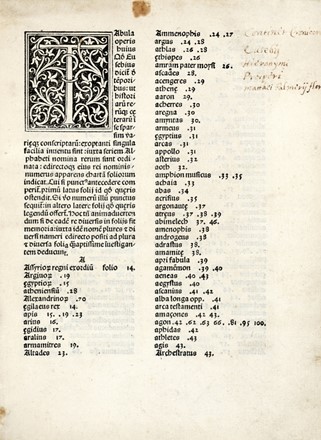 TAbula
operis
huius
Qđ Eu
sebius
dicit̄ đ
tēpori
bus: ut
histori
arū re⸗
rūqꝫ ce
terarū ī
se spar
sim va⸗
rieqꝫ conscriptarū: exoptanti singula
facilia inuentu sint: iuxta seriem Al⸗
phabeti nomina rerum sunt ordi⸗
nata: e directoqꝫ eius rei nominis⸗
numerus apparens charte foliorum
indicat. Cui si punct⁹ antecedere com
periet̄. primū latus folii id qđ queris
ostendit. Ei vo numerū illū punctus
sequit̄: in altero later: folii qđ queris
legendū offert̄. Doct aīmaduerten
dum ē: de eadē re diuersa in foliis sit
memoria: iuxta idē nomē plures e di
uersi numeri edirecto positi: ad plura
e diuersa folia qptissime lucstigan⸗
tem deducunt.
A
Assyrioꝝ regni exordiū folio 14.
Argiuoꝝ .19
egyptioꝝ 15.
atheniensiū .28
Alexandrinoꝝ .70
argila eus rex 14.
apis 15. .19 .23
arius 16.
egidius 17.
aralius 17.
armamitres 19.
Altades 23.
Ammenophis .24 .27
argus .24 .28
athlas .24 .28
ethiopes 26
amram pater moysī 26.
ascades 28.
acengeres .29
athene .29
aaron 29.
acherres .30
aregna .30
amyntas 30.
armeus .31
egyptius .31
arcas .31
appollo .31
asterius .32
aoth .32
amphion musicus .33 .35
achaia .33
abas .34
acrisius .35
argonauṭe .37
atreus .37 .38 .39
abimelech .37 46.
amenophis .38
androgeus .38
adrastus 38.
amamitę 38.
apri fabula .39
agamēnon .39 .40
aeneas .40 .43
aegystus .40
ascanius .41 .42
alba longa opp. .41
arca testamenti .41
amaçones .42 43.
agon .42 62. 63 66. .81 .95 100.
aphidas .42
athletes .43
agis 43.
Archestratus 43.